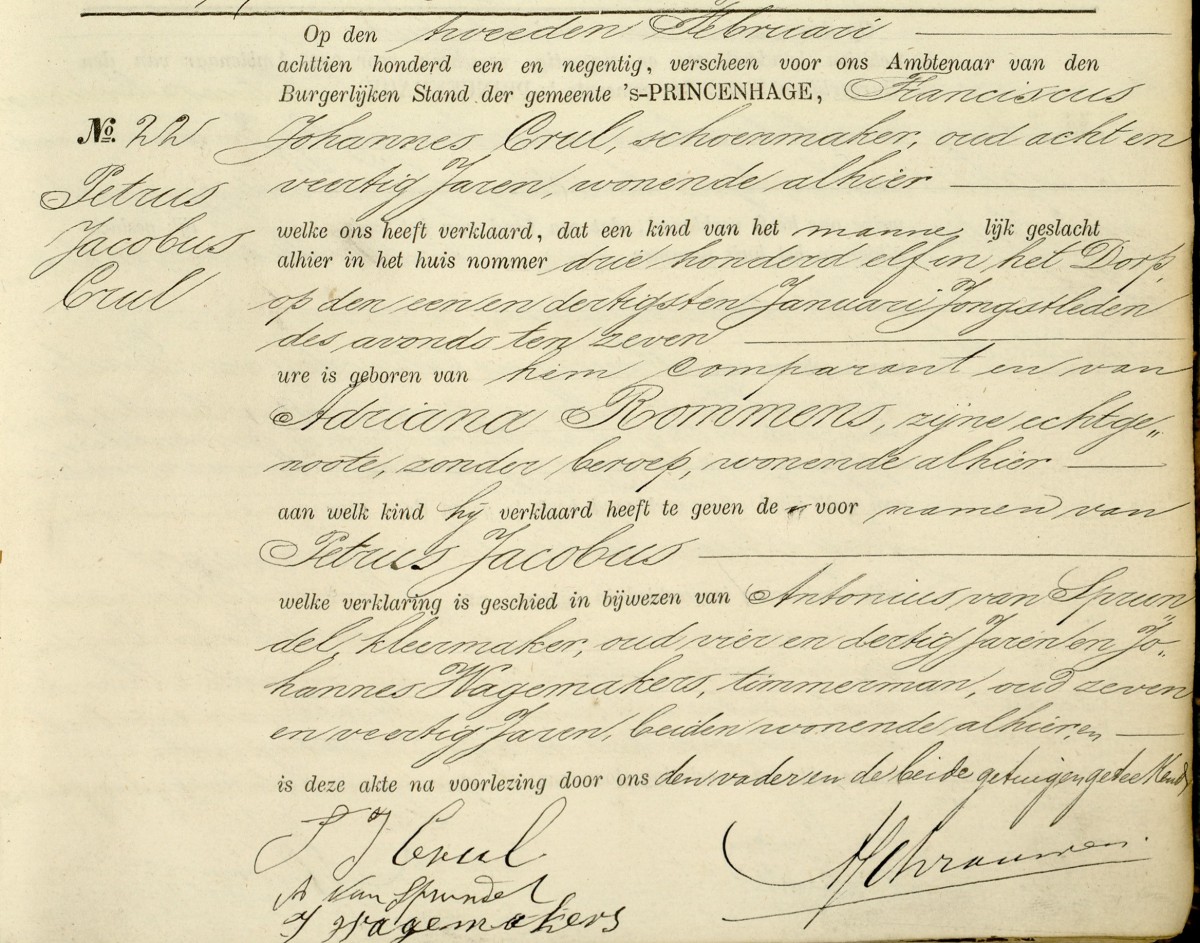 Op den tweeden Februari
achttien honderd een en negentig, verscheen voor ons Ambtenaar van den
Burgerlijken Stand der gemeente 's-PRINCENHAGE, Franciscus
No. 22 Johannes Crul, schoenmaker, oud acht en
Petrus veertig Jaren, wonende alhier
Jacobus welke ons heeft verklaard, dat een kind van het manne lijk geslacht
alhier in het huis nommer drie honderd elf in het Dorp,
Crul op den een en dertigsten Januari Jongstleden
des avonds ten zeven
ure is geboren van hem Comparant en van
Adriana Rommens, zijne echtge„
noote, zonder beroep, wonende alhier
aan welk kind hij verklaard heeft te geven de n voor namen van
Petrus Jacobus
welke verklaring is geschied in bijwezen van Antonius van Sprun„
del, kleermaker, oud vier en dertig Jaren en Jo„
hannes Wagemakers, timmerman, oud zeven
en veertig Jaren, beiden wonende alhier, en
is deze akte na voorlezing door ons den vader en de beide getuigen geteekend
F J Crul
A van Sprundel
J Wagemakers